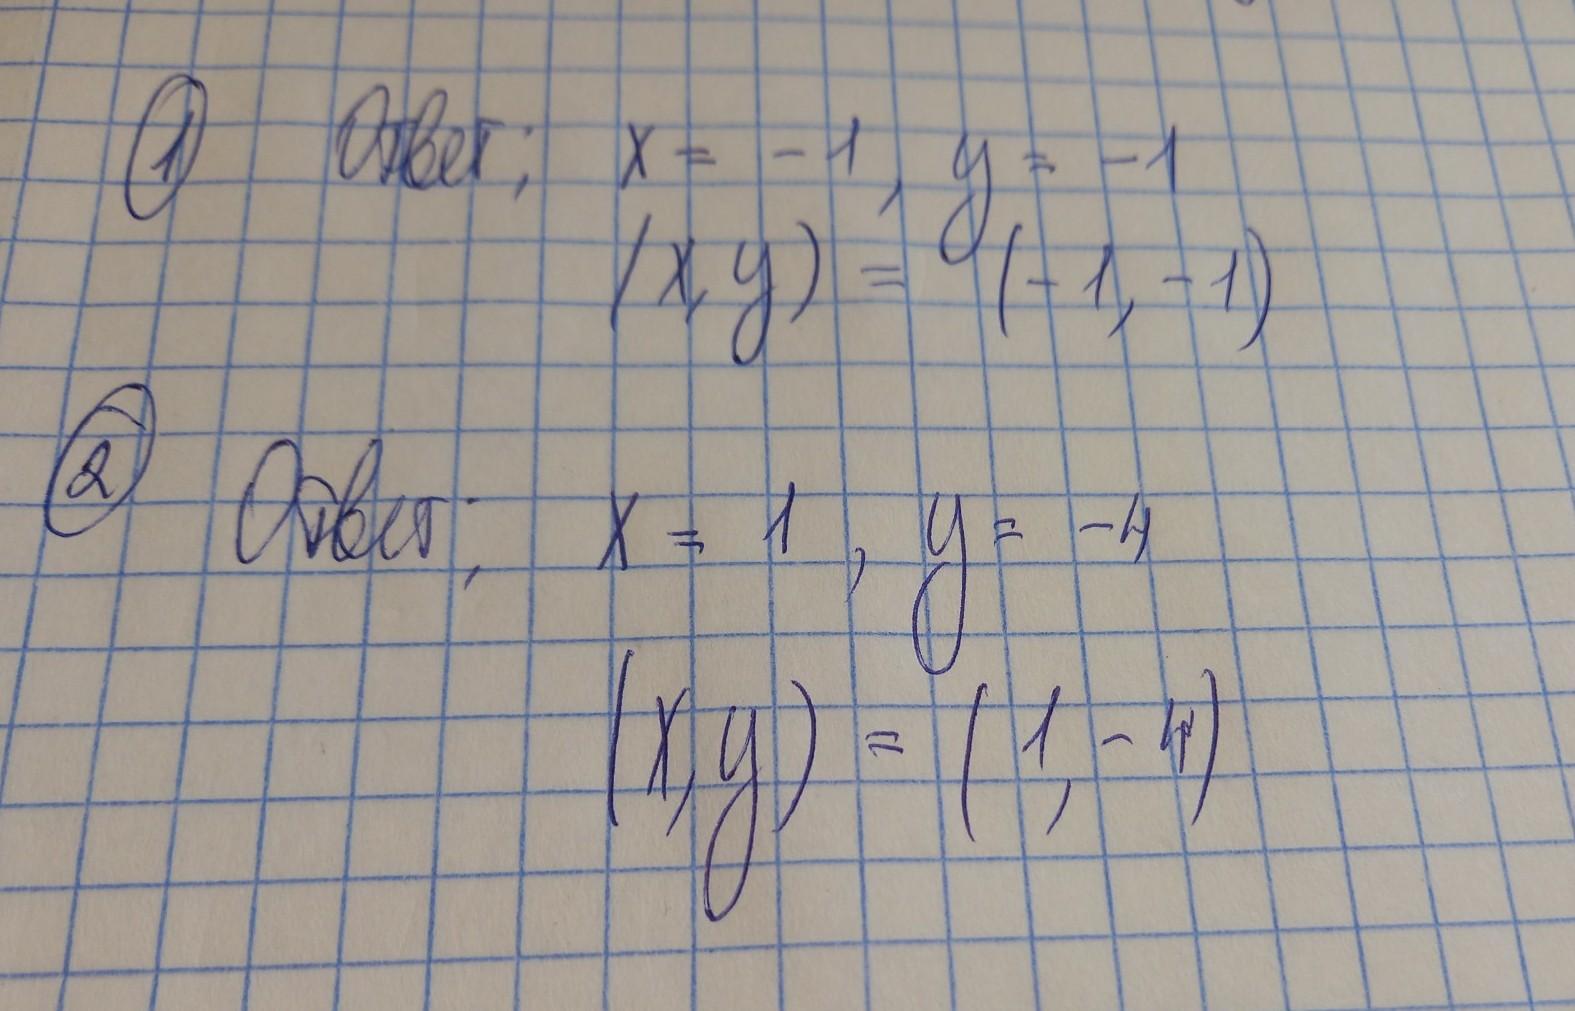 1 Ответ: x = -1, y = -1
(x, y) = (-1, -1)
2 Ответ: x = 1, y = -4
(x, y) = (1, -4)